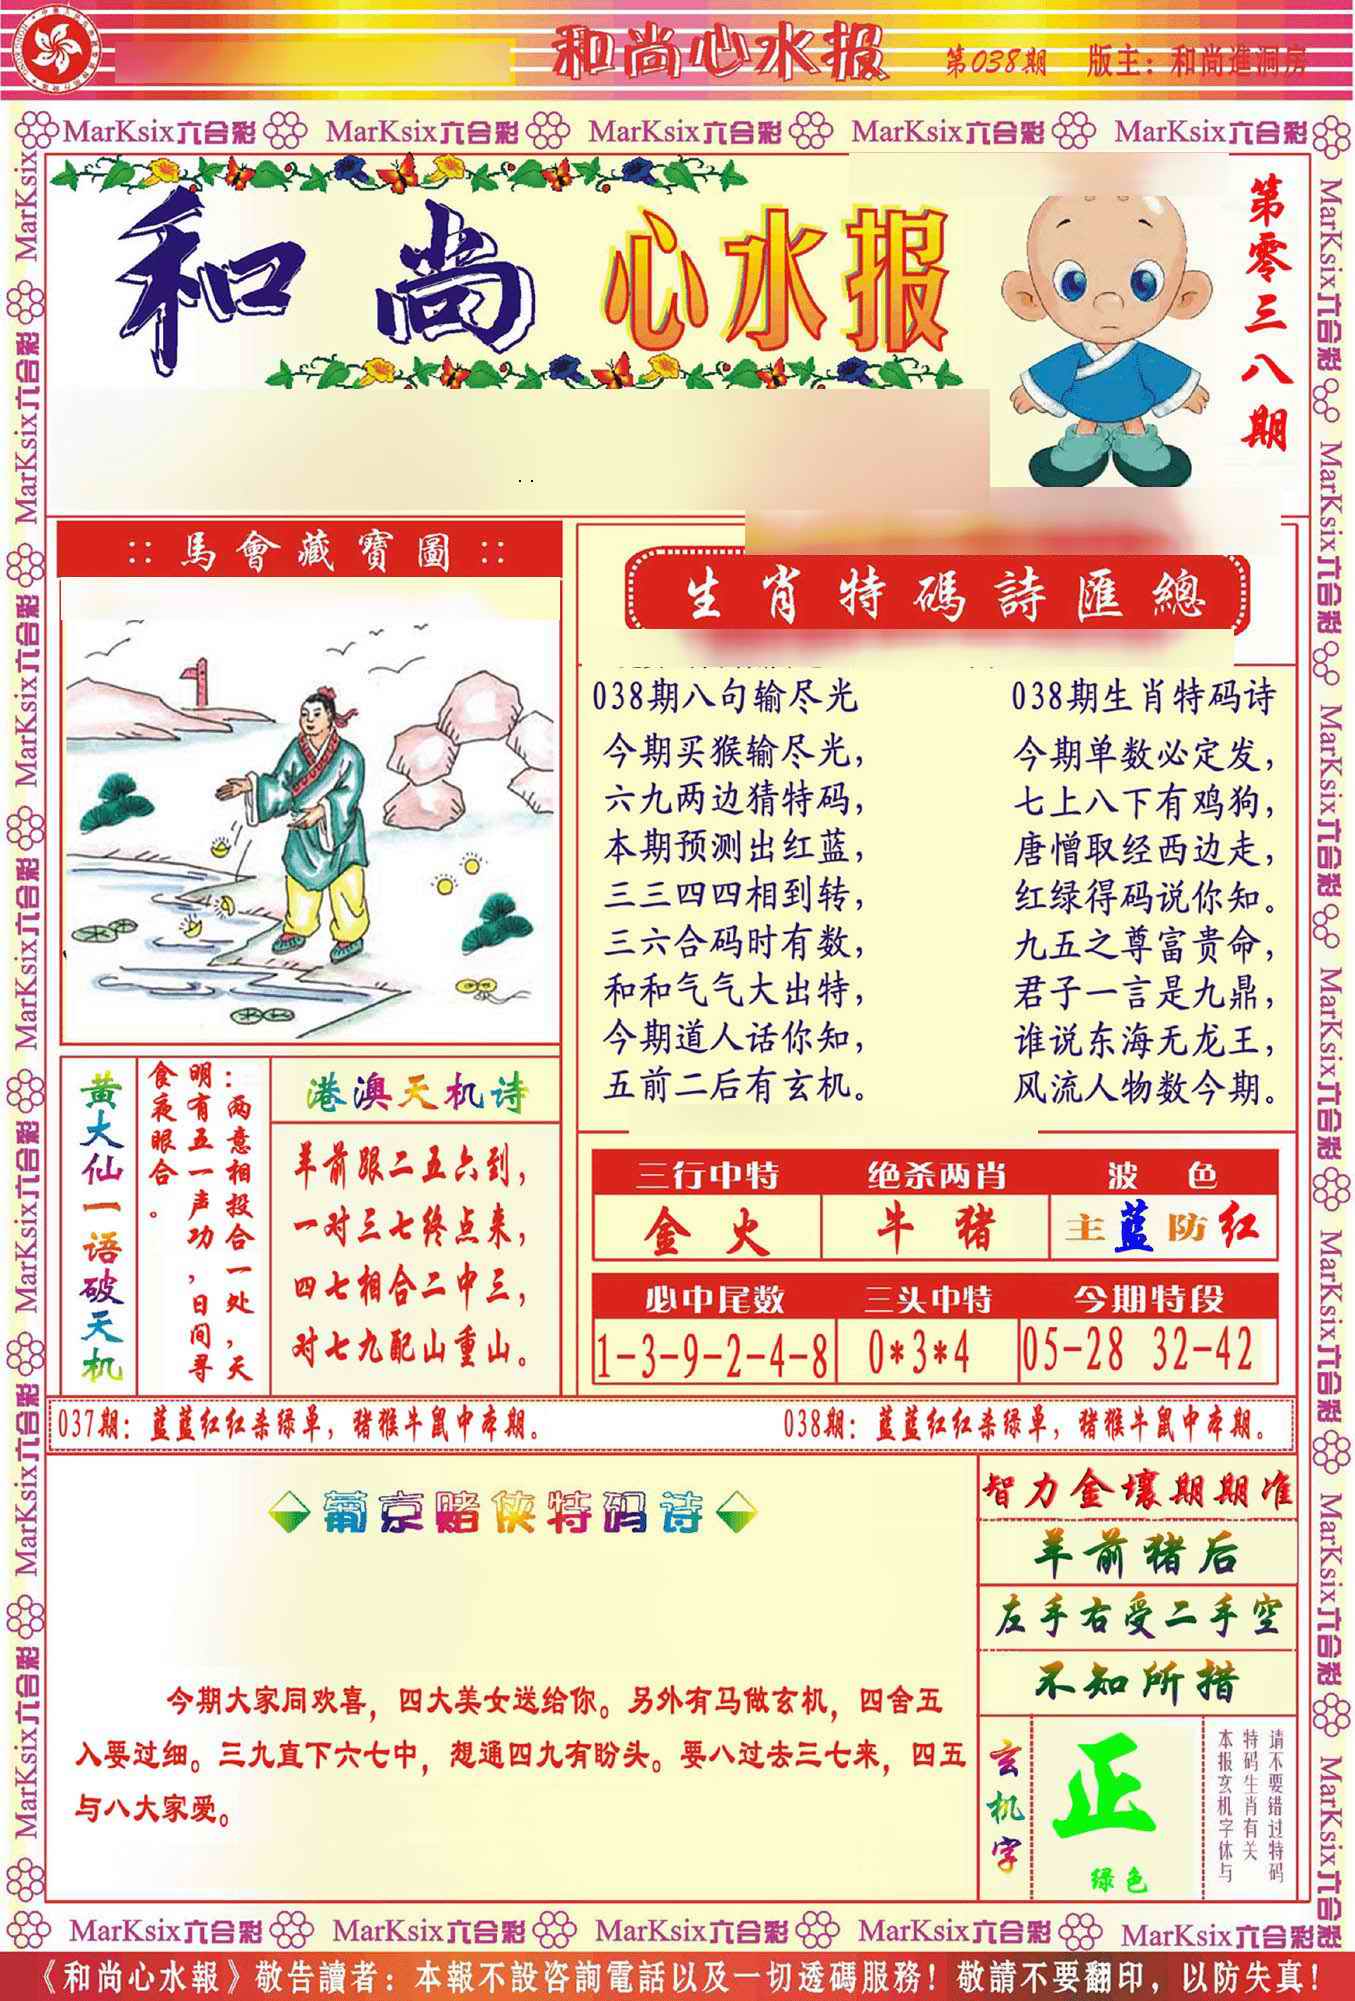 和尚心水报 第038期 版主：和尚進洞房
MarKsix六合彩 MarKsix六合彩 MarKsix六合彩 MarKsix六合彩 MarKsix六合彩
和尚心水报
第零三八期
::馬會藏寶圖::
生肖特碼詩匯總
038期八句输尽光
今期买猴输尽光，
六九两边猜特码，
本期预测出红蓝，
三三四四相到转，
三六合码时有数，
和和气气大出特，
今期道人话你知，
五前二后有玄机。
038期生肖特码诗
今期单数必定发，
七上八下有鸡狗，
唐憎取经西边走，
红绿得码说你知。
九五之尊富贵命，
君子一言是九鼎，
谁说东海无龙王，
风流人物数今期。
黄大仙一语破天机
：两意相投合一处，天
明有五一声功，日间寻
食夜眼合。
港澳天机诗
羊前跟二五六到，
一对三七终点来，
四七相合二中三，
对七九配山重山。
三行中特 绝杀两肖 波色
金火 牛猪 主蓝防红
必中尾数 三头中特 今期特段
1-3-9-2-4-8 0*3*4 05-28 32-42
037期：蓝蓝红红杀绿单，猪猴牛鼠中本期。
038期：蓝蓝红红杀绿单，猪猴牛鼠中本期。
葡京赌侠特码诗
今期大家同欢喜，四大美女送给你。另外有马做玄机，四舍五
入要过细。三九直下六七中，想通四九有盼头。要八过去三七来，四五
与八大家爱。
智力金壤期期准
羊前猪后
左手右受二手空
不知所措
玄机字
正
绿色
请不要错过特码
特码生肖有关
本报玄机字体与
MarKsix六合彩 MarKsix六合彩 MarKsix六合彩 MarKsix六合彩 MarKsix六合彩
《和尚心水報》敬告讀者：本報不設咨詢電話以及一切透碼服務！敬請不要翻印，以防失真！